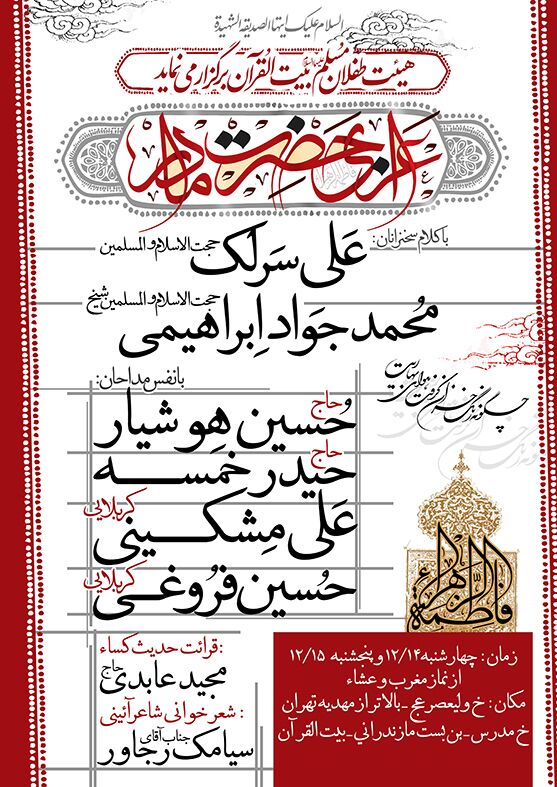 السلام علیک ایتها الصدیقة الشهیدة
هیئت طفلان مسلم علیه السلام بیت القرآن برگزار می نماید
عزای حضرت مادر
فاطمة الزهرا
با کلام سخنرانان:
حجت الاسلام و المسلمین
عَلی سَرلَک
حجت الاسلام و المسلمین شیخ
مُحمد جَواد اِبراهیمی
با نفس مداحان:
حاج
حُسین هوشیار
حاج
حیدر خمسه
کربلایی
عَلی مِشکینی
کربلایی
حُسین فُروغی
فاطمة الزهرا
قرائت حدیث کساء:
حاج
مجید عابدی
شعر خوانی شاعر آئینی:
جناب آقای
سیامک رجاور
زمان : چهارشنبه ۱۲/۱۴ و پنجشنبه ۱۲/۱۵
از نماز مغرب و عشاء
مکان : خ ولیعصر عج - بالاتر از مهدیه تهران
خ مدرس - بن بست مازندرانی - بیت القرآن